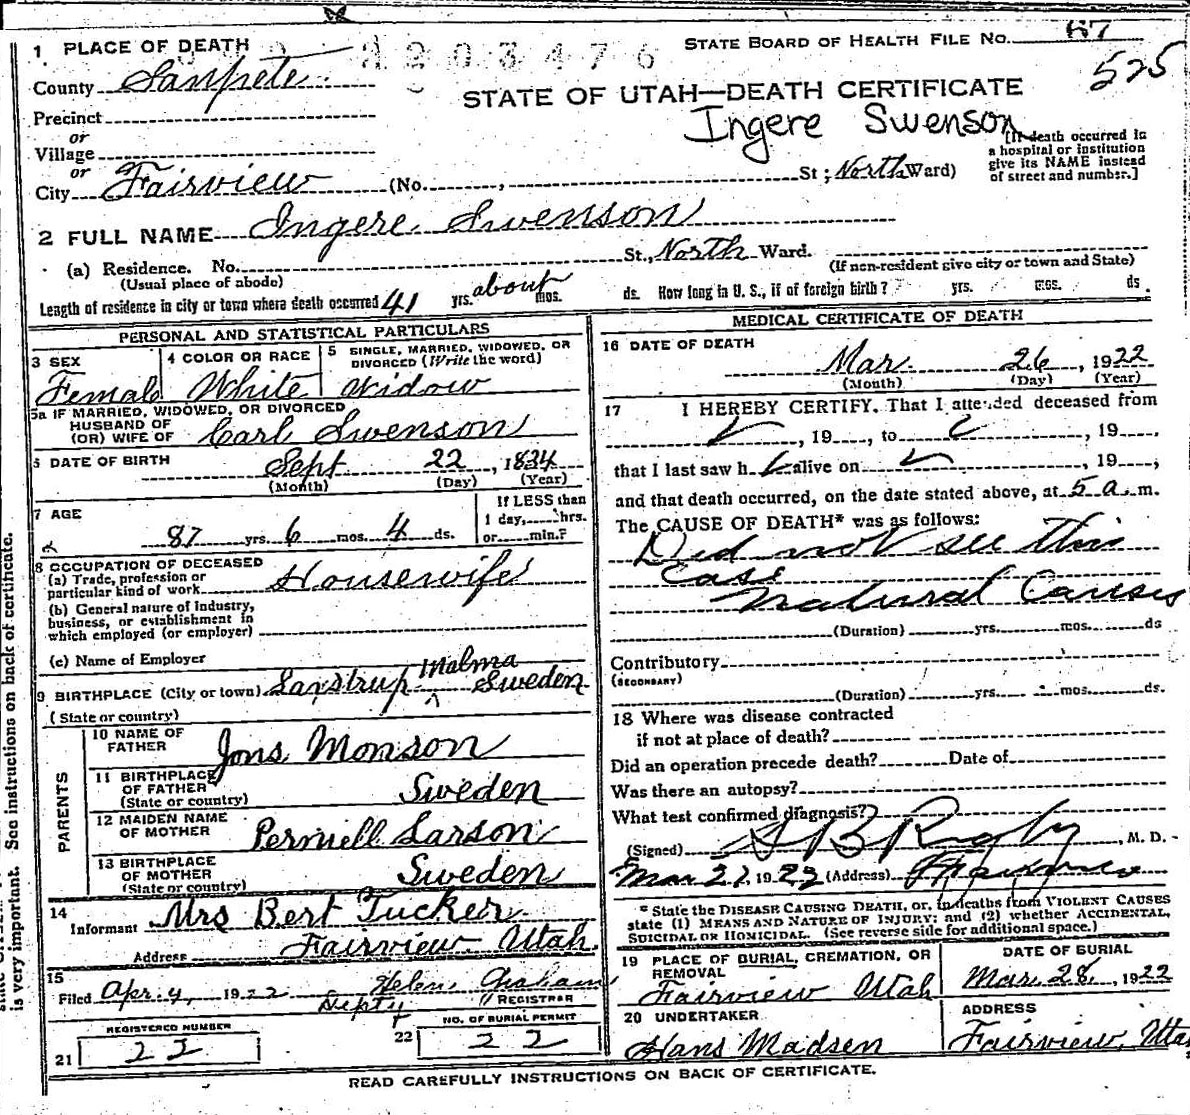 1 PLACE OF DEATH
2203476
STATE BOARD OF HEALTH FILE No. 67
525
County Sanpete
STATE OF UTAH—DEATH CERTIFICATE
Ingere Swenson
Precinct
or
Village
or
City Fairview (No. , St; North Ward)
[If death occurred in a hospital or institution give its NAME instead of street and number.]
2 FULL NAME Ingere Swenson
(a) Residence. No. St., North Ward.
(Usual place of abode) (If non-resident give city or town and State)
Length of residence in city or town where death occurred 41 yrs. about mos. ds. How long in U. S., if of foreign birth? yrs. mos. ds.
PERSONAL AND STATISTICAL PARTICULARS
3 SEX Female
4 COLOR OR RACE White
5 SINGLE, MARRIED, WIDOWED, OR DIVORCED (Write the word) Widow
5a IF MARRIED, WIDOWED, OR DIVORCED
HUSBAND OF
(OR) WIFE OF Carl Swenson
DATE OF BIRTH Sept 22, 1834
(Month) (Day) (Year)
7 AGE
87 yrs. 6 mos. 4 ds.
If LESS than
1 day, hrs.
or min.?
8 OCCUPATION OF DECEASED
(a) Trade, profession or
particular kind of work Housewife
(b) General nature of industry,
business, or establishment in
which employed (or employer)
(c) Name of Employer
9 BIRTHPLACE (City or town) Malma Sweden
(State or country)
PARENTS
10 NAME OF FATHER Jons Monson
11 BIRTHPLACE OF FATHER (State or country) Sweden
12 MAIDEN NAME OF MOTHER Pernell Larson
13 BIRTHPLACE OF MOTHER (State or country) Sweden
14
Informant Mrs Bert Tucker
Address Fairview Utah.
15
Filed Apr. 4, 1922 Helen Graham
Depty REGISTRAR
REGISTERED NUMBER
21 22
NO. OF BURIAL PERMIT
22 22
MEDICAL CERTIFICATE OF DEATH
16 DATE OF DEATH
Mar. 26, 1922
(Month) (Day) (Year)
17 I HEREBY CERTIFY, That I attended deceased from
, 19 , to , 19 ,
that I last saw h alive on , 19 ,
and that death occurred, on the date stated above, at 5 a. m.
The CAUSE OF DEATH* was as follows:
Did not see this
Case
Natural Causes
(Duration) yrs. mos. ds
Contributory
(SECONDARY)
(Duration) yrs. mos. ds.
18 Where was disease contracted
if not at place of death?
Did an operation precede death? Date of
Was there an autopsy?
What test confirmed diagnosis?
(Signed) Rigby, M. D.
Mar 27, 1922 (Address) Fairview
* State the DISEASE CAUSING DEATH, or, in deaths from VIOLENT CAUSES
state (1) MEANS AND NATURE OF INJURY; and (2) whether ACCIDENTAL,
SUICIDAL OR HOMICIDAL. (See reverse side for additional space.)
19 PLACE OF BURIAL, CREMATION, OR REMOVAL
Fairview Utah
DATE OF BURIAL
Mar. 28, 1922
20 UNDERTAKER
Hans Madsen
ADDRESS
Fairview, Utah
READ CAREFULLY INSTRUCTIONS ON BACK OF CERTIFICATE.
is very important. See instructions on back of certificate.